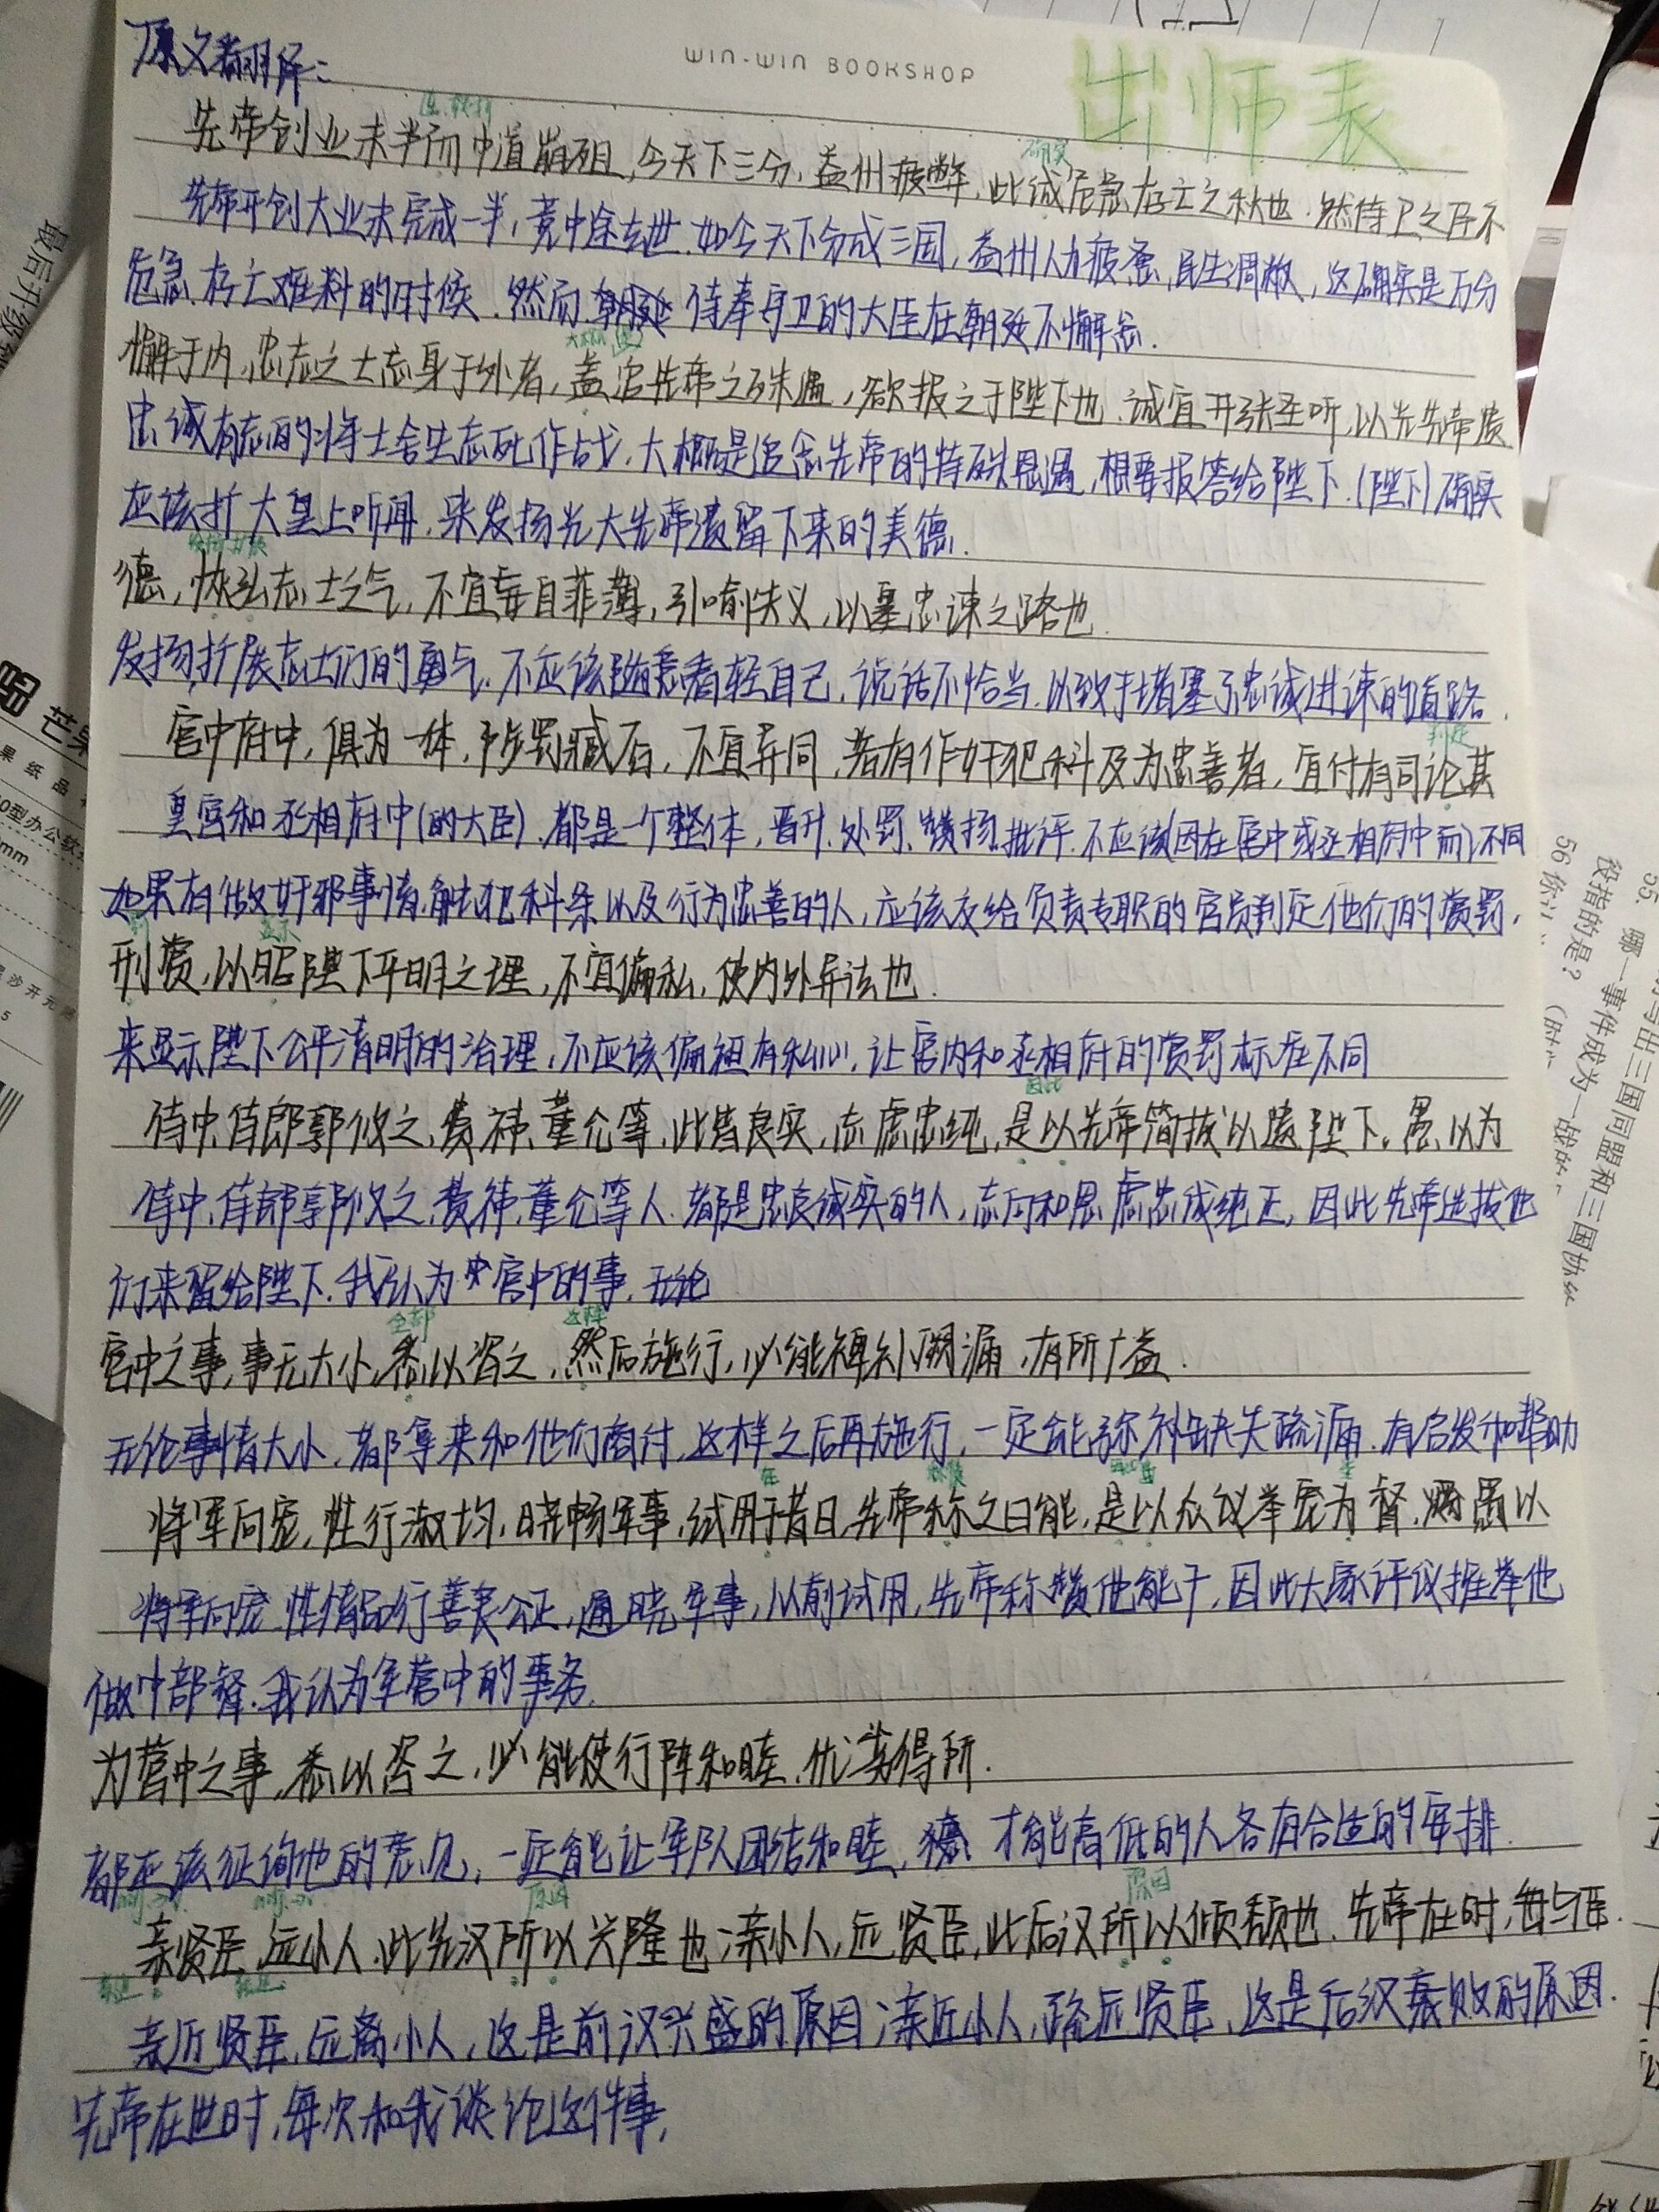 WIN-WIN BOOKSHOP
出师表
原文翻译：
先帝创业未半而中道崩殂，今天下三分，益州疲弊，此诚危急存亡之秋也．然侍卫之臣不
确实
先帝开创大业未完成一半，竟中途去世．如今天下分成三国，益州人力疲惫、民生凋敝，这确实是万分
危急、存亡难料的时候．然而侍奉守卫的大臣在朝廷不懈怠．
懈于内，忠志之士忘身于外者，盖追先帝之殊遇，欲报之于陛下也．诚宜开张圣听，以光先帝遗
忠诚有志的将士舍生忘死作战，大概是追念先帝的特殊恩遇，想要报答给陛下．(陛下)确实
应该扩大皇上听闻，来发扬光大先帝遗留下来的美德．
发扬扩展
德，恢弘志士之气，不宜妄自菲薄，引喻失义，以塞忠谏之路也．
发扬扩展志士们的勇气．不应该随意看轻自己，说话不恰当，以致于堵塞了忠诚进谏的道路．
判定
宫中府中，俱为一体，陟罚臧否，不宜异同，若有作奸犯科及为忠善者，宜付有司论其
皇宫和丞相府中(的大臣)．都是一个整体，晋升、处罚、赞扬、批评．不应该(因在宫中或丞相府中而)不同
如果有做奸邪事情、触犯科条以及行为忠善的人，应该交给负责专职的官员判定他们的赏罚，
罚
显示
刑赏，以昭陛下平明之理，不宜偏私，使内外异法也．
来显示陛下公平清明的治理，不应该偏袒有私心，让宫内和丞相府的赏罚标准不同
因此
侍中、侍郎郭攸之、费祎、董允等，此皆良实，志虑忠纯，是以先帝简拔以遗陛下．愚以为
侍中、侍郎郭攸之、费祎、董允等人．都是忠良诚实的人，志向和思虑忠诚纯正，因此先帝选拔他
们来留给陛下．我认为宫中的事．无论
全部 这样
宫中之事，事无大小，悉以咨之，然后施行，必能裨补阙漏，有所广益．
无论事情大小，都拿来和他们商讨，这样之后再施行，一定能弥补缺失疏漏．有启发和帮助
在 称赞 因此
将军向宠，性行淑均，晓畅军事，试用于昔日，先帝称之曰能，是以众议举宠为督．愚以
将军向宠．性情品行善良公正，通晓军事，从前试用，先帝称赞他能干，因此大家评议推举他
做中部督．我认为军营中的事务．
为营中之事，悉以咨之，必能使行阵和睦，优劣得所．
都应该征询他的意见，一定能让军队团结和睦，才能高低的人各有合适的安排．
原因 原因
亲贤臣，远小人，此先汉所以兴隆也；亲小人，远贤臣，此后汉所以倾颓也．先帝在时，每与臣
亲近 疏远
亲近贤臣，远离小人，这是前汉兴盛的原因；亲近小人，疏远贤臣，这是后汉衰败的原因．
先帝在世时，每次和我谈论这件事，
最后升级
芒果
果纸品
0型办公软
mm
沙开元
5
出三国同盟和三国协约
55. 哪一事件成为一战
没指的是？
56